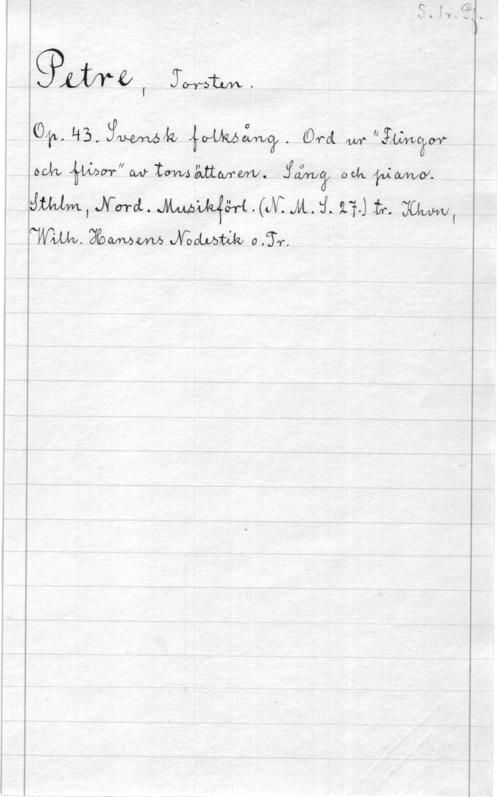 S. tr. Pf.
Petre, Torsten.
Op. 43. Svensk folksång. Ord ur "Flingor
och flisor" av tonsättaren. Sång och piano.
Sthlm, Nord. Musikförl. (N. M. S. 27.) tr. Khvn,
Wilh. Hansens Nodestik o. Tr.